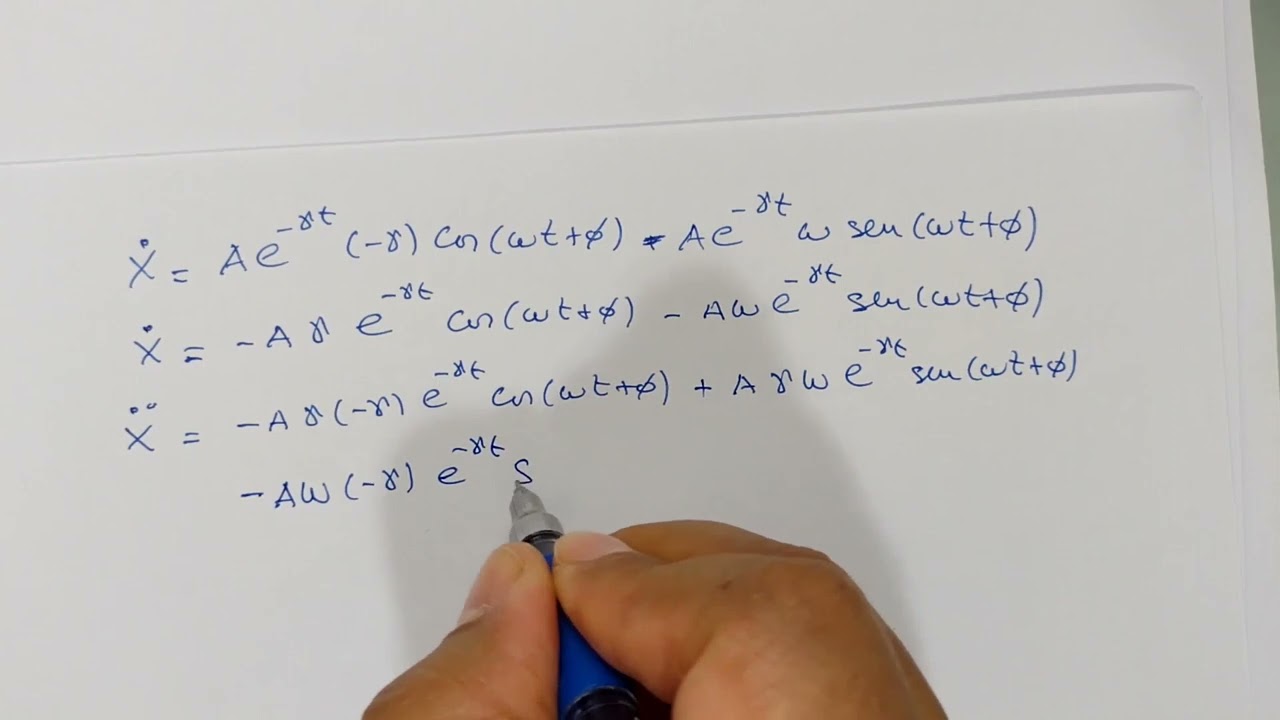 ẋ = A e^{-γt} (-γ) cos(ωt+φ) - A e^{-γt} ω sen(ωt+φ)
ẋ = -A γ e^{-γt} cos(ωt+φ) - A ω e^{-γt} sen(ωt+φ)
ẍ = -A γ (-γ) e^{-γt} cos(ωt+φ) + A γ ω e^{-γt} sen(ωt+φ)
- A ω (-γ) e^{-γt} s